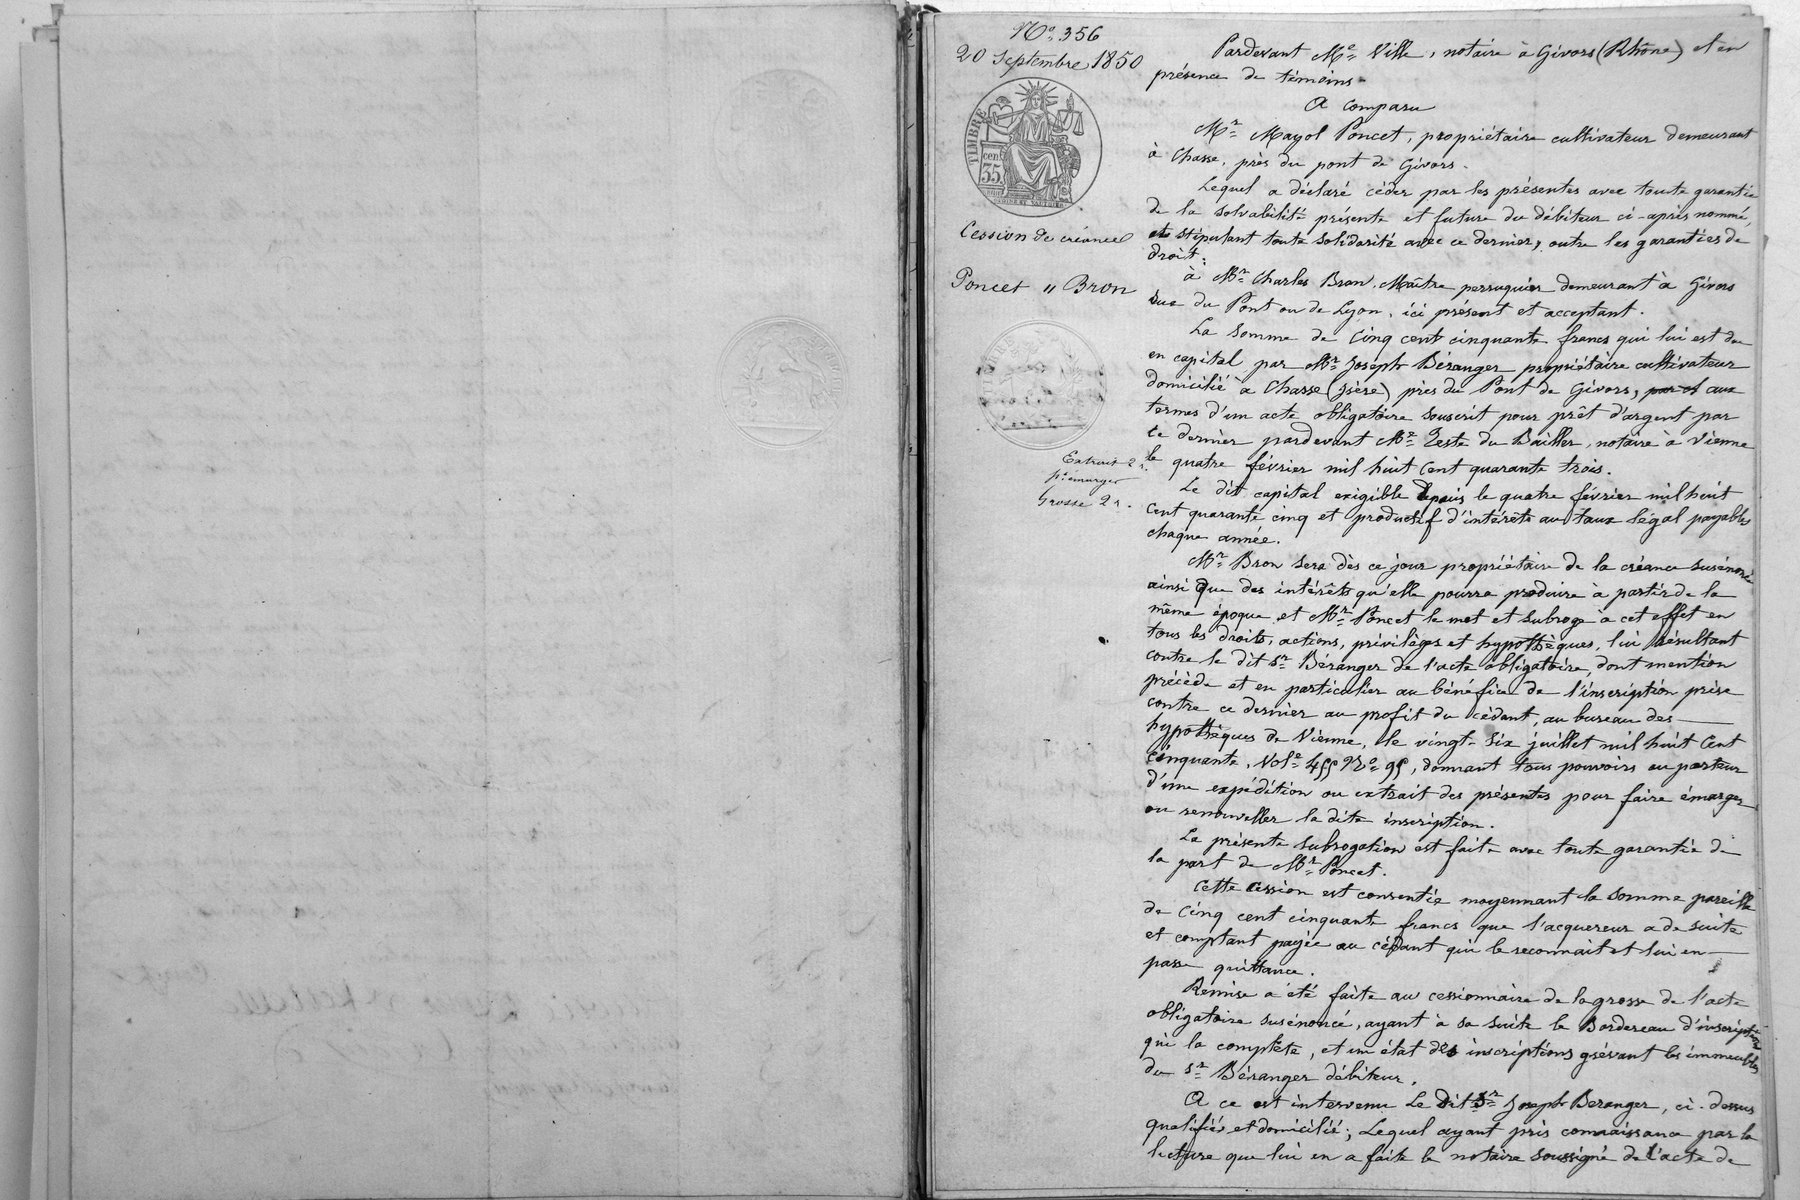 No. 356
20 Septembre 1850
TIMBRE
cent
35
Cession de créance
Poncet " Bron
Extrait 2 r.
pr. émarger
Grosse 2 r.
Pardevant Me Ville, notaire à Givors (Rhône) et en
présence de témoins.
A comparu
Mr Mayol Poncet, propriétaire cultivateur demeurant
à Chasse, près du pont de Givors.
Lequel a déclaré céder par les présentes avec toute garantie
de la solvabilité présente et future du débiteur ci-après nommé,
stipulant toute solidarité avec ce dernier, outre les garanties de
droit;
à Mr Charles Bron, Maître perruquier demeurant à Givors
rue du Pont ou de Lyon, ici présent et acceptant.
La somme de cinq cent cinquante francs qui lui est due
en capital par Mr Joseph Béranger propriétaire cultivateur
domicilié à Chasse (Isère) près du Pont de Givors, par et aux
termes d'un acte obligatoire souscrit pour prêt d'argent par
ce dernier pardevant Me Teste du Bailler, notaire à Vienne
le quatre février mil huit cent quarante trois.
Le dit capital exigible depuis le quatre février mil huit
cent quarante cinq et productif d'intérêts au taux légal payables
chaque année.
Mr Bron sera dès ce jour propriétaire de la créance susénoncée
ainsi que des intérêts qu'elle pourra produire à partir de la
même époque et Mr Poncet le met et subroge à cet effet en
tous les droits, actions, privilèges et hypothèques, lui résultant
contre le dit Sr Béranger de l'acte obligatoire, dont mention
précède et en particulier au bénéfice de l'inscription prise
contre ce dernier au profit du cédant, au bureau des
hypothèques de Vienne, le vingt-six juillet mil huit cent
cinquante, Vole 455 No 95, donnant tous pouvoirs au porteur
d'une expédition ou extrait des présentes pour faire émarger
ou renouveller la dite inscription.
La présente subrogation est faite avec toute garantie de
la part de Mr Poncet.
Cette cession est consentie moyennant la somme pareille
de cinq cent cinquante francs que l'acquereur a de suite
et comptant payée au cédant qui le reconnait et lui en
passe quittance.
Remise a été faite au cessionnaire de la grosse de l'acte
obligatoire susénoncé, ayant à sa suite le Bordereau d'inscription
qui la complète, et un état des inscriptions grévant les immeubles
du Sr Béranger débiteur.
A ce est intervenu Le dit Sr Joseph Beranger, ci-dessus
qualifié et domicilié; Lequel ayant pris connaissance par la
lecture que lui en a faite le notaire soussigné de l'acte de